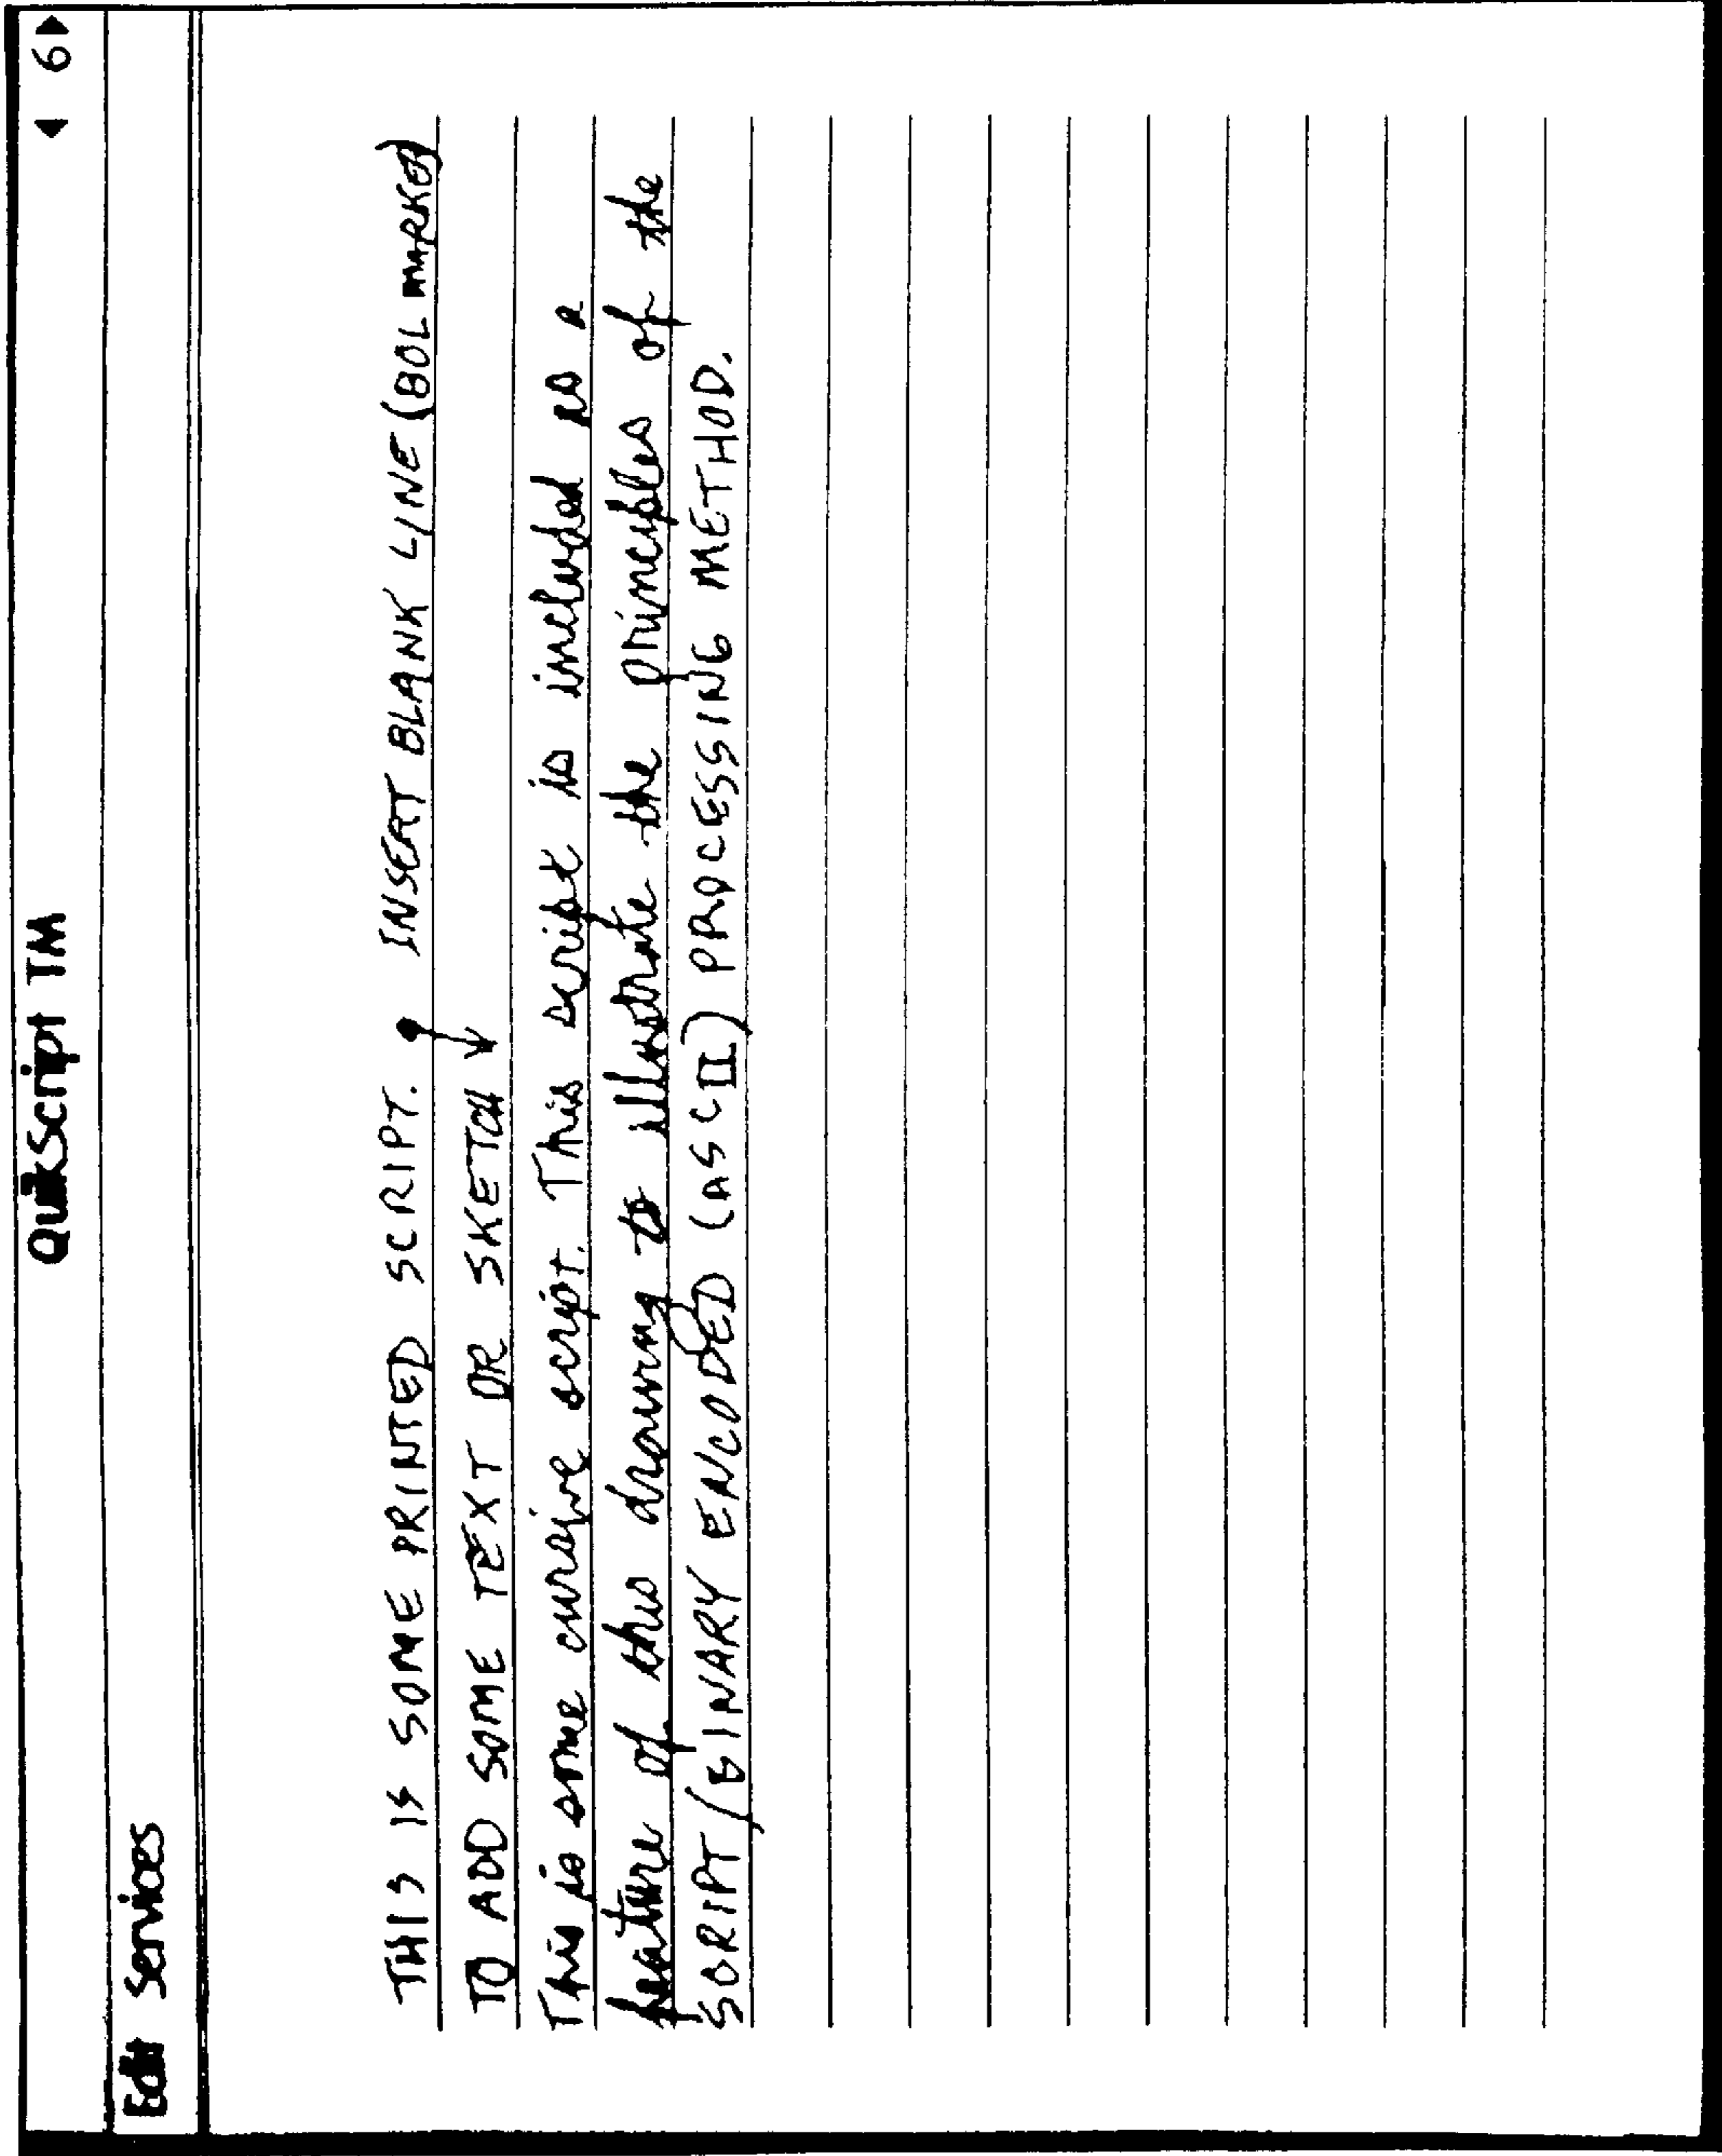 QuikScript TM ◀ 6▶
Edit Services
THIS IS SOME PRINTED SCRIPT. INSERT BLANK LINE (BOL MARKED)
TO ADD SOME TEXT OR SKETCH
This is some cursive script. This script is included as a
feature of this drawing to illustrate the principles of the
SCRIPT/(BINARY ENCODED (ASCII) PROCESSING METHOD.